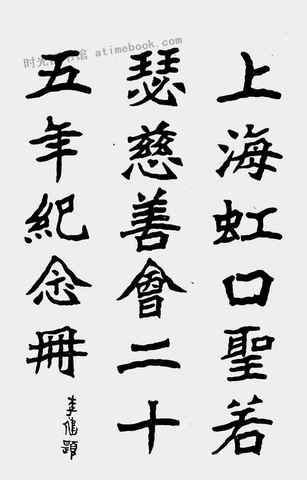 上海虹口聖若
瑟慈善會二十
五年紀念冊
李偘題
时光 书馆 atimebook.com